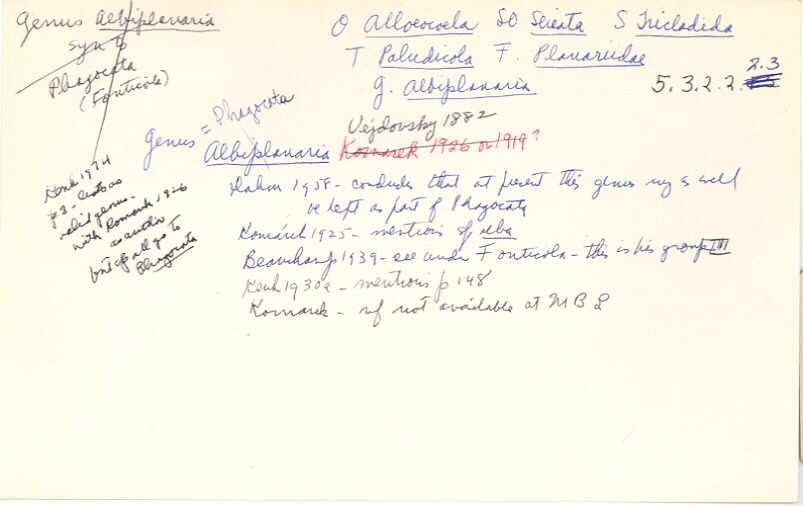 Genus Albiplanaria
syn to
Phagocata
(Fonticola)
O Alloeocoela SO Seriata S Tricladida
T Paludicola F. Planariidae
g. Albiplanaria 5.3.2.2. 2.3
Genus = Phagocata
Albiplanaria Vejdovsky 1882
Komarek 1926 or 1919?
Kenk 1974
p3 - lists as
valid genus.
with Komarek 1926
as author
but sp all go to
Phagocata
Dahm 1958 - concludes that at present this genus may as well
be left as part of Phagocata
Komárek 1925 - mentions sp alba
Beauchamp 1939 - see under Fonticola - this is his group III
Kenk 1930a - mentions p 148
Komarek - ref not available at MBL